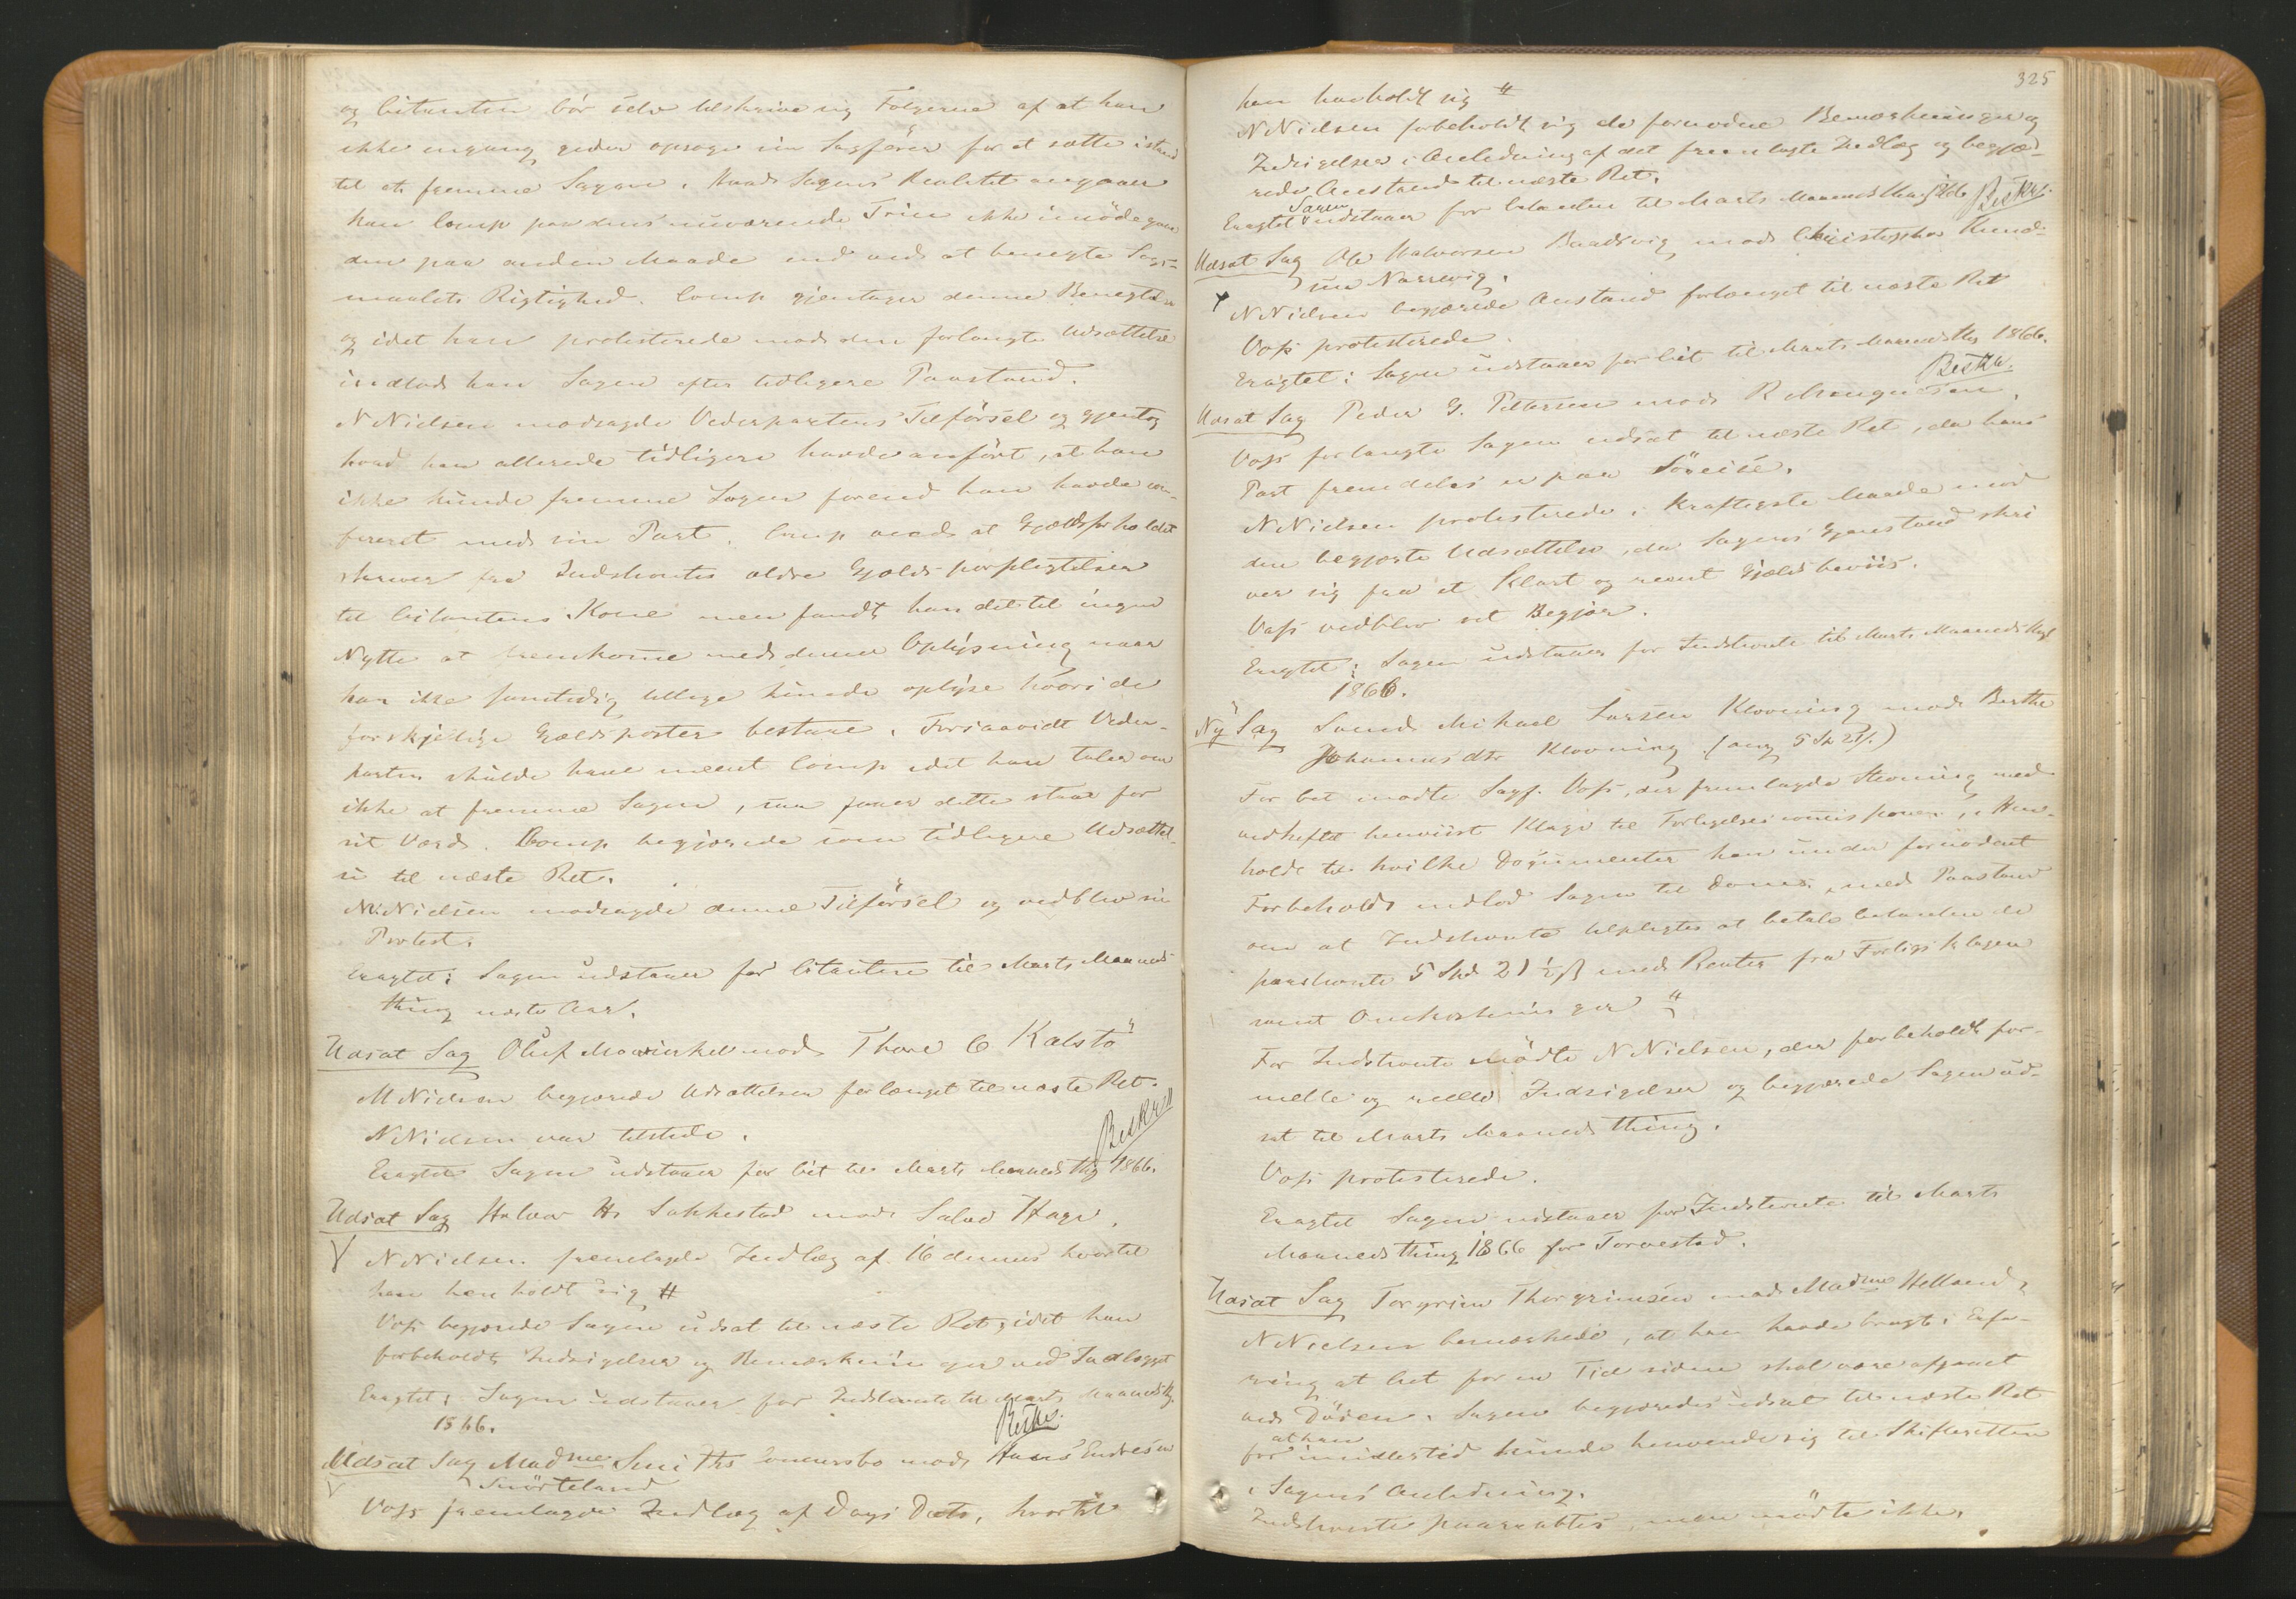 og Citanten bør selv tilskrive sig Følgerne af at han
ikke engang gider opsøge sin Sagfører for at sætte istand
til at fremme Sagen. Hvad Sagens Realitet angaaer
kan Comp paa dens nuværende Trin ikke imødegaae
den paa anden Maade end ved at benegte Søgs-
maalets Rigtighed. Comp gjentager denne Benegtelse
og idet han protesterede mod den forlangte Udsættelse
indlod han Sagen efter tidligere Paastand.
N Nielsen modsagde Vederpartens Tilførsel og gjentog
hvad han allerede tidligere havde anført, at han
ikke kunde fremme Sagen forend han havde con-
fereret med sin Part. Comp at Gjældsforholdet
skriver fra Indstevntes ældre Gjælds forpligtelser
til Citantens Kone men fandt han det til ingen
Nytte at fremkomme med denne Oplysning naar
han ikke samtidig tillige kunde oplyse hvori de
forskjellige Gjældsposter bestaae. Forsaavidt Veder-
parten skulde have meent Comp idet han taler om
ikke at fremme Sagen, saa faaer dette staae for
sit Værd. Comp begjærede som tidligere Udsættel-
se til næste Ret.
N. Nielsen modsagde denne Tilførsel og vedblev sin
Protest.
Eragtet: Sagen udstaaer for Citanten til Marts Maaneds
thing næste Aar.
Udsat Sag Oluf mod Thore C Kalstø
M Nielsen begjærede Udsættelsen forlænget til næste Ret.
N Nielsen var tilstede.
Beskr
Eragtet Sagen udstaaer for Cit til Marts Maaneds Thg 1866.
Udsat Sag Halvor Hs Sakkestad mod Salve Hage.
N Nielsen fremlagde Indlæg af 16 dennes hvortil
han henholdt sig #
Voss begjærede Sagen udsat til næste Ret, idet han
forbeholdt Indsigelser og Bemærkninger ved Indlægget
Eragtet: Sagen udstaaer for Indstevnte til Marts Maanedsthg.
1866. Beskr.
Udsat Sag Madme Ths mod Hans Endresen
Snørteland
Voss fremlagde Indlæg af Dags Dato, hvortil
325
han henholdt sig #
N Nielsen forbeholdt sig de fornødne Bemærkninger og
Indsigelser i Anledning af det fremlagte Indlæg og begjæ-
rede Anstand til næste Ret.
Eragtet Sagen udstaaer for Citanten til Marts Maaneds Beskr.
Udsat Sag Ole Halvorsen Baadsvig mod Christopher Knud-
sen Nørrevig.
N Nielsen begjærede Anstand forlænget til næste Ret
Voss protesterede.
Eragtet: Sagen udstaaer for Cit til Marts Maaneds Thg 1866.
Beskr.
Udsat Sag Peder G. Pettersen mod R
Voss forlangte Sagen udsat til næste Ret, da hans
Part fremdeles er paa Søreise.
N Nielsen protesterede i kraftigste Maade mod
den begjærte Udsættelse, da Sagens Gjenstand skri
ver sig fra et klart og reent Gjældsbeviis.
Voss vedblev sit Begjær.
Eragtet: Sagen udstaaer for Indstevnte til Marts Maaneds
1866.
Ny Sag Svend Michael Larsen Klovning mod Berthe
Johannesdtr Klovning (ang 5 Sp 21)
For Cit mødte Sagf. Voss, der fremlagde Stevning med
vedheftet henviist Klage til Forligelsescommissionen, i Hen-
hold til hvilke Documenter han under fornødent
Forbehold indlod Sagen til Doms, med Paastand
om at Indstevnte tilpligtes at betale Citanten de
paastevnte 5 Spd 21 ½ ß med Renter fra Forligsklagen
samt Omkostninger #
For Indstevnte mødte N Nielsen, der forbeholdt for-
melle og reelle Indsigelser og begjærede Sagen ud-
sat til Marts Maaneds thing.
Voss protesterede.
Eragtet Sagen udstaaer for Indstevnte til Marts
Maaneds thing 1866 for Torvestad.
Udsat Sag Torgrim Thorgrimsen mod Madme Helland,
N Nielsen bemærkede, at han havde bragt i Erfa-
ring at Cit for en Tid siden skal være afgaaet
ved Døden. Sagen begjæredes udsat til næste Ret
for at han imidlertid kunde henvende sig til Skifteretten
i Sagens Anledning.
Indstevnte paaraabtes, men mødte ikke.